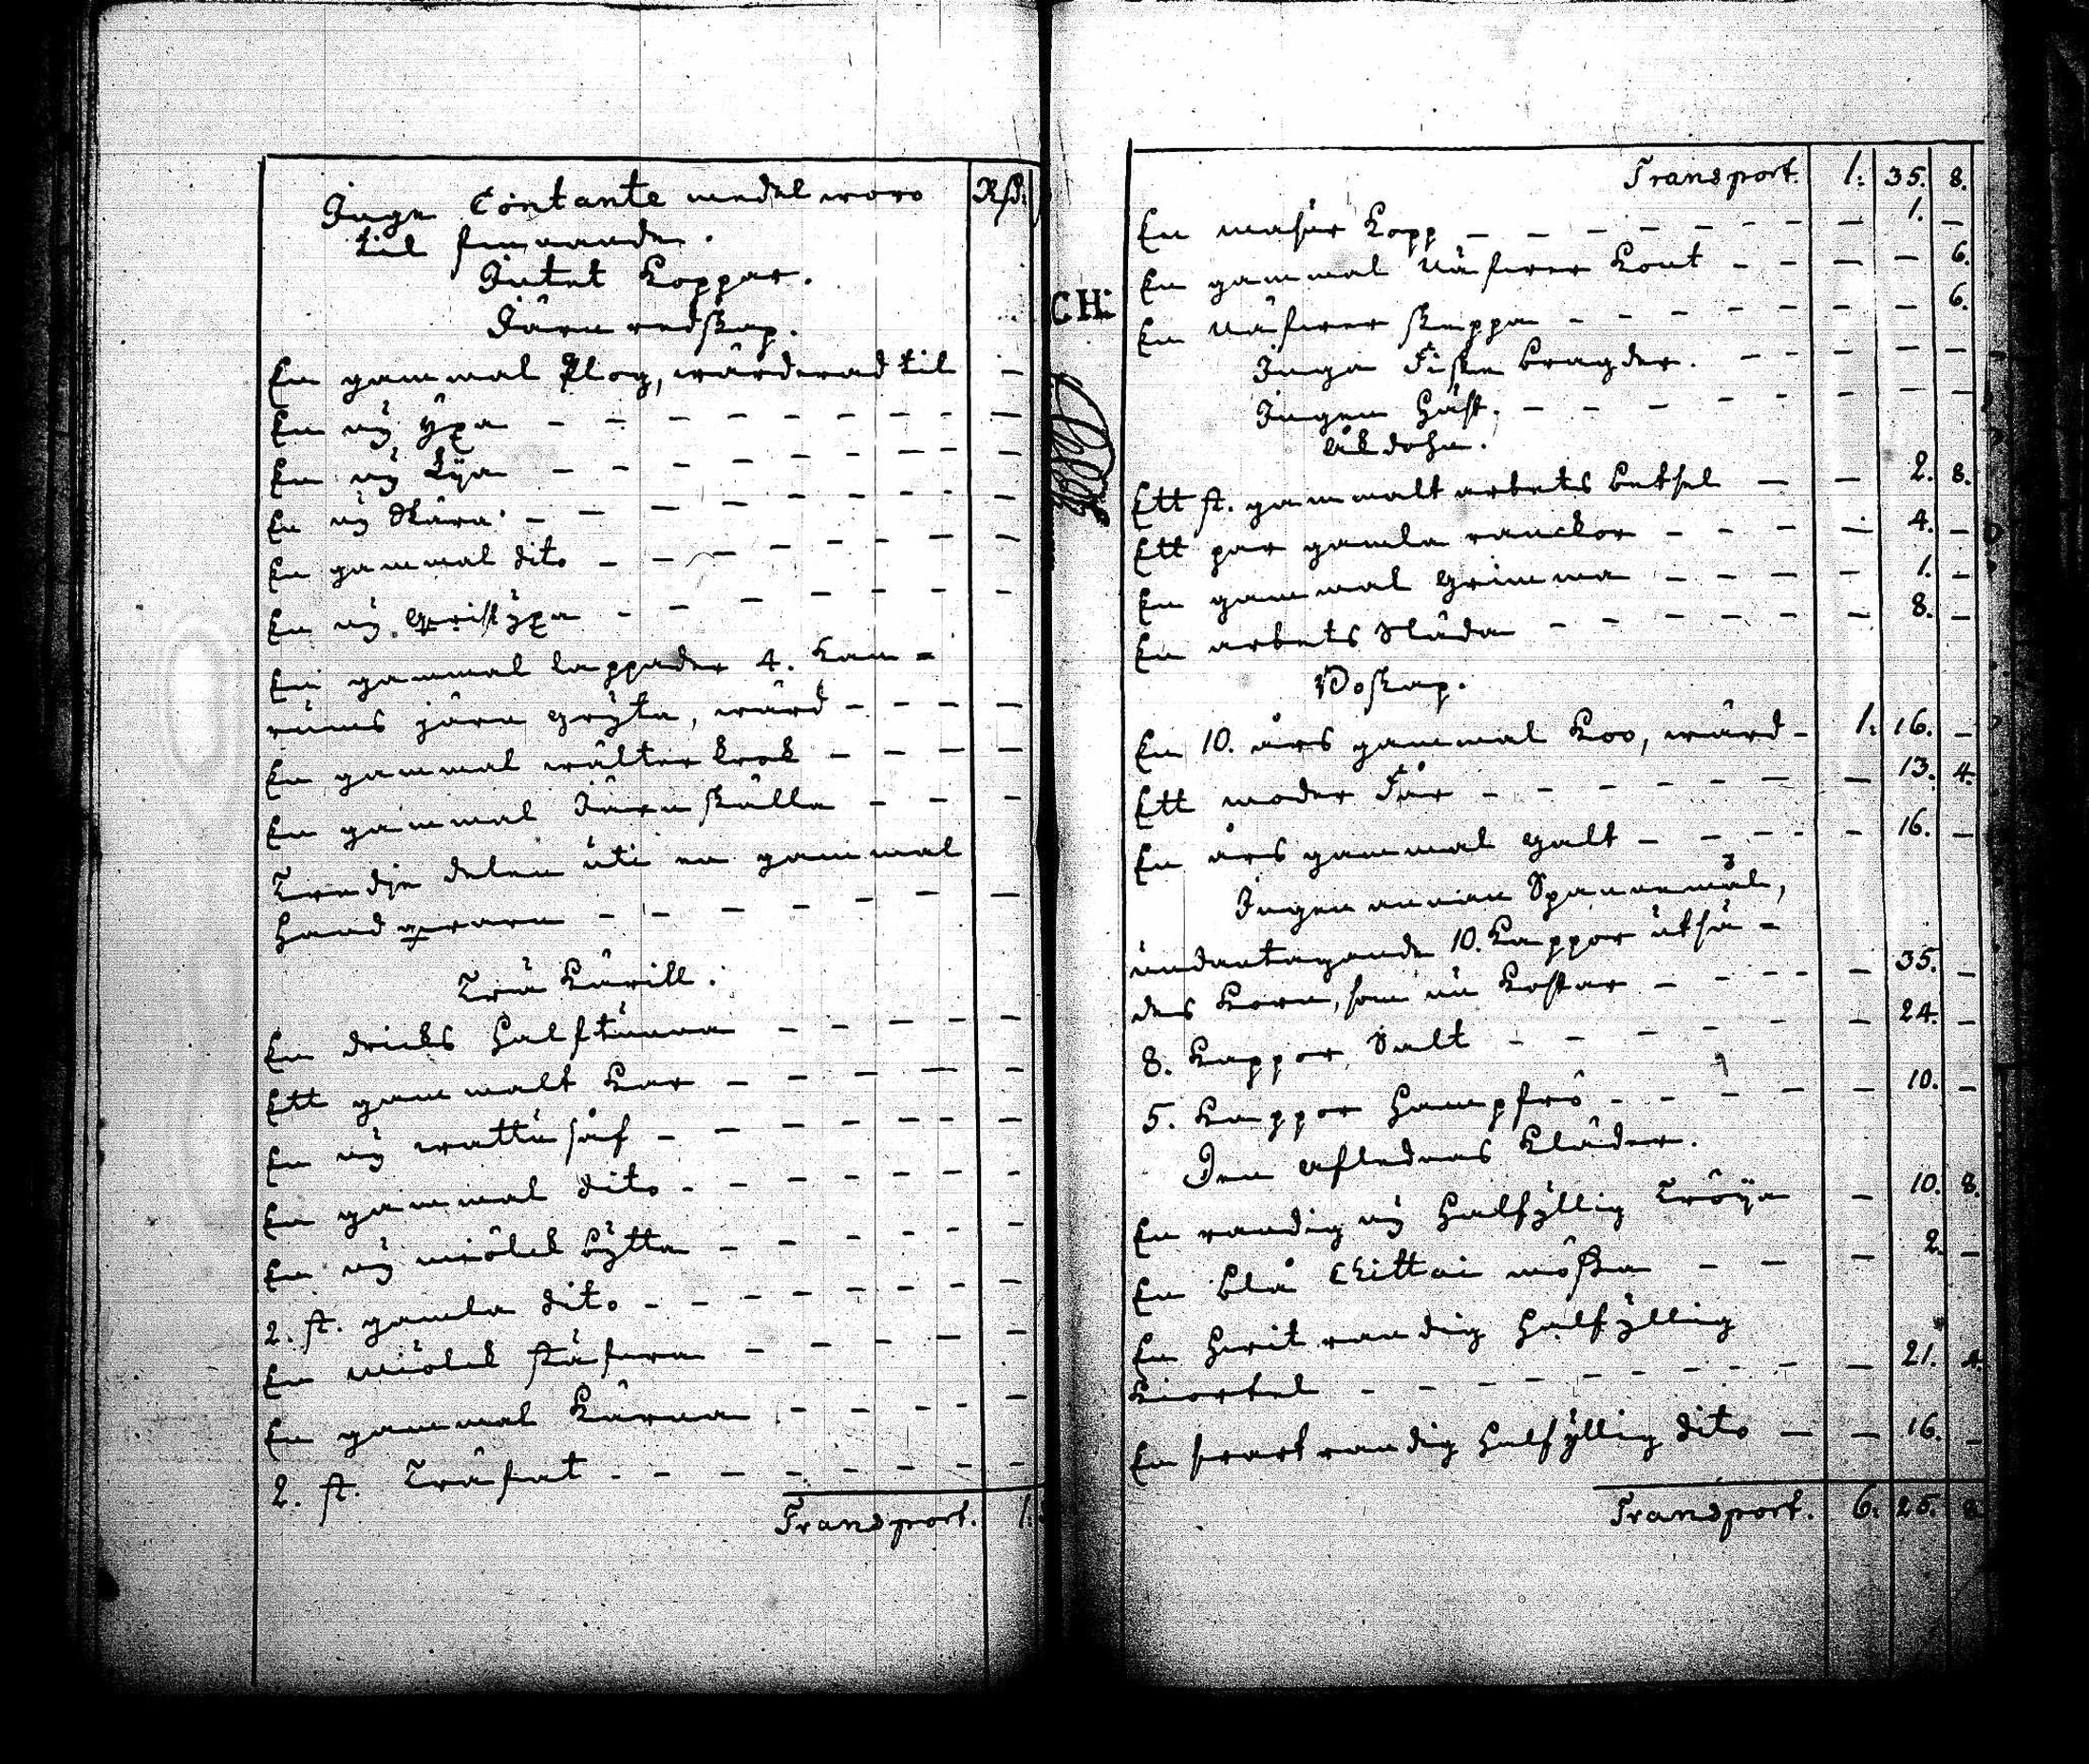 Inga Contante medel woro
til finnande.
Rsd.
Intet Koppar.
Järn redskap.
En gammal Plog, wärderad til —
En ny yxa — — — — — — — —
En ny Lÿa — — — — — — — —
En ny Skära — — — — — — —
En gammal dito — — — — — — —
En ny Gristÿxa — — — — — — —
En gammal lappader 4. Kan-
nums järn gryta, wärd — — — —
En gammal wälter krok — — — —
En gammal Järn skålla — — —
Tredje delen uti en gammal
handqwarn — — — — — — —
Trä Kärill.
En dricks halftunna — — — — —
Ett gammalt Kar — — — — — —
En ny wattu såf — — — — — —
En gammal dito — — — — — —
En ny miölck bÿtta — — — — —
2. st. gamla dito — — — — — — —
En miölck stäfwa — — — — —
En gammal Kärna — — — — —
2. st. Träfat — — — — — — —
Transport. 1.
CH.
Transport. 1. 35. 8.
En masur Kopp — — — — — — — 1. —
En gammal näfwer Kont — — — — 6.
En näfwer skeppa — — — — — — — 6.
Inga Fiske bragder. — — — — —
Ingen häst. — — — — — — —
Åkdohn.
Ett st. gammalt arbets betsel — — 2. 8.
Ett par gamla ranckor — — — — 4. —
En gammal Grimma — — — — 1. —
En arbets Släda — — — — — — 8. —
Boskap.
En 10. års gammal Koo, wärd — 1. 16. —
Ett moder Får — — — — — — 13. 4.
En års gammal galt — — — — — 16. —
Ingen annan Spannemål,
undantagande 10. Kappor utså-
des Korn, som nu Kostar — — — — 35. —
8. Kappor Salt — — — — — — 24. —
5. Kappor hampfrö — — — — — 10. —
Den Aflednas Kläder.
En randig ny halfÿllig Tröÿa — 10. 8.
En blå Chittai mössa — — — 2. —
En hwit randig halfÿllig
Kiortel — — — — — — — — 21. 4.
En swart randig halfÿllig dito — — 16. —
Transport. 6. 25. 8.